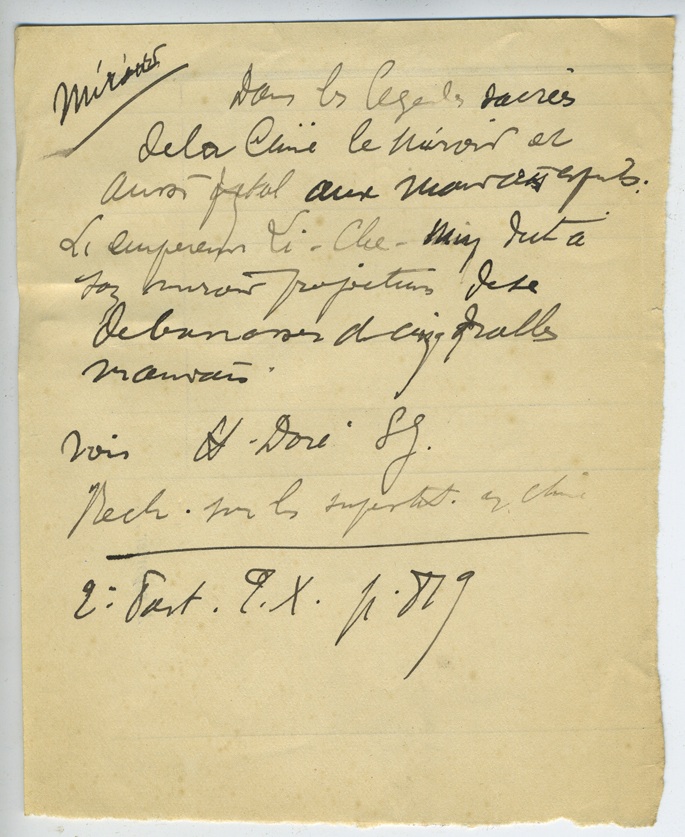 Miroir
Dans les legendes sacrées
de la Chine le miroir est
aussi fatal aux mauvais esprits.
L'empereur Li-Che-Min dut à
son miroir projecteur de se
debarrasser de cinq
mauvais.
voir H. Doré S.J.
Rech. sur les superstit. en Chine
2e Part. T. X. p.